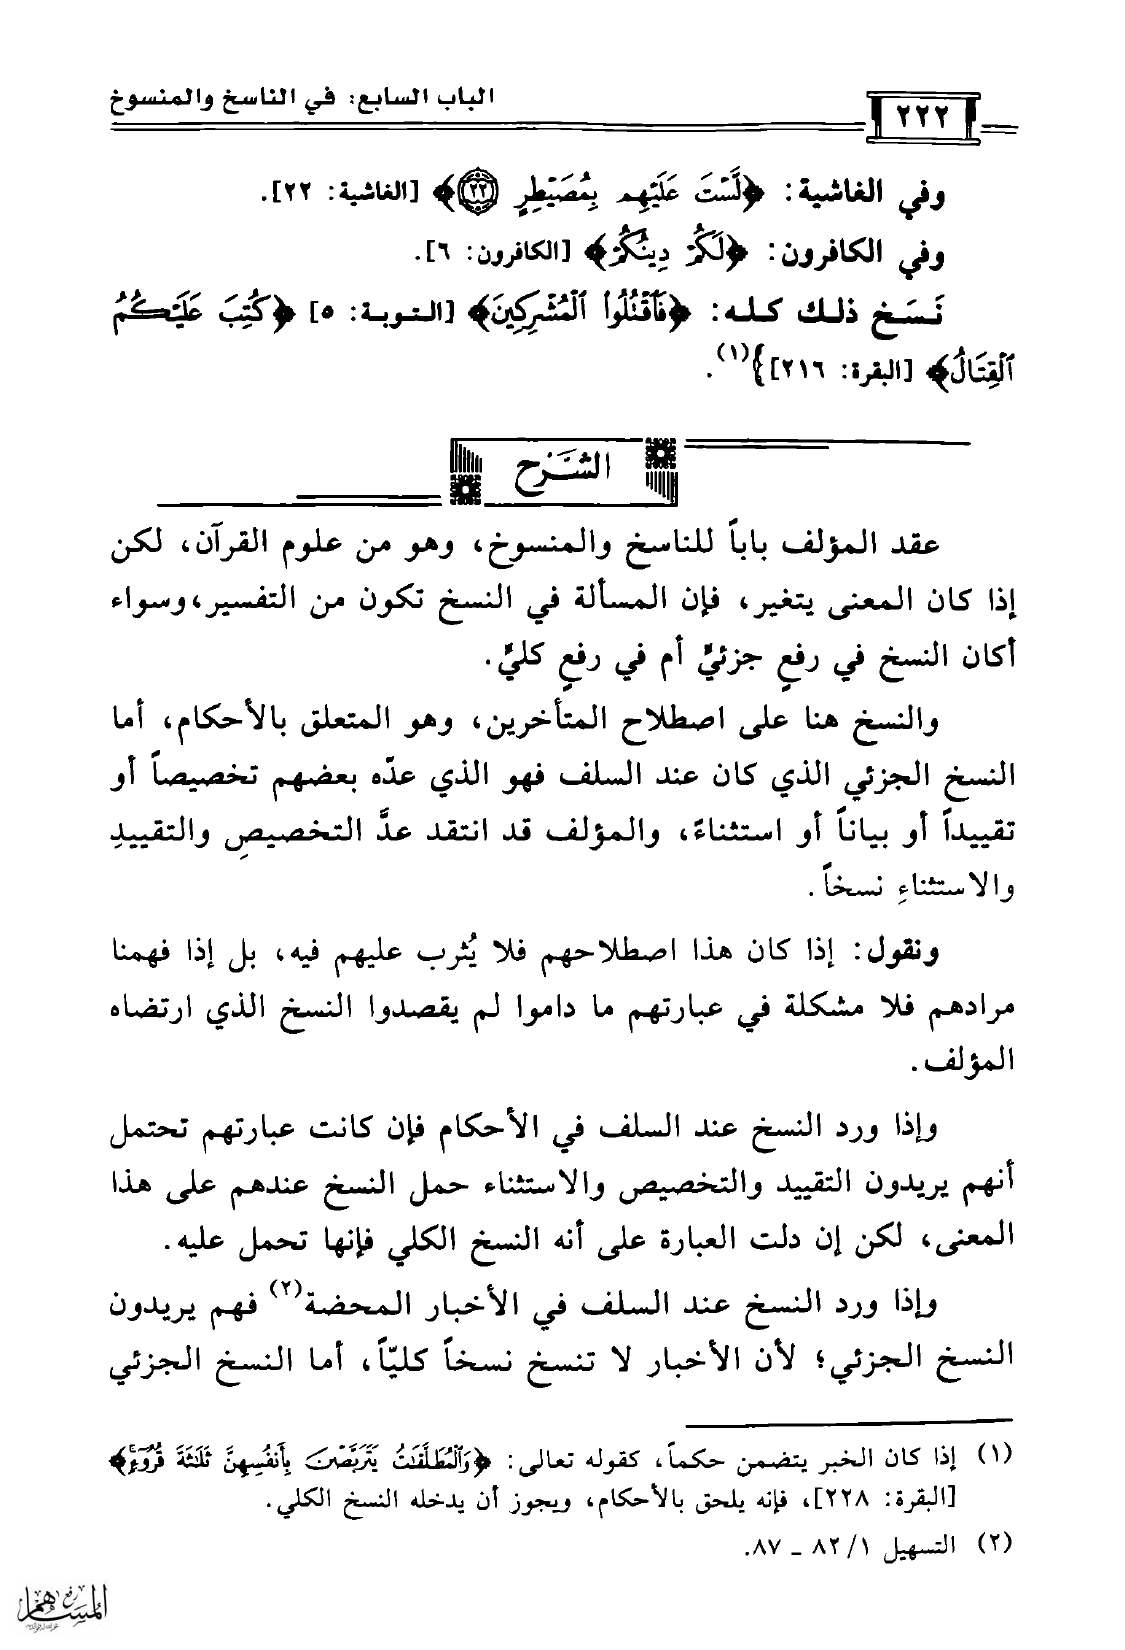 الباب السابع: في الناسخ والمنسوخ
٢٢٢
وفي الغاشية: ﴿لَّسْتَ عَلَيْهِم بِمُصَيْطِرٍ ۝٢٢﴾ [الغاشية: ٢٢].
وفي الكافرون: ﴿لَكُمْ دِينُكُمْ﴾ [الكافرون: ٦].
نَسَخ ذلك كله: ﴿فَاقْتُلُوا۟ الْمُشْرِكِينَ﴾ [التوبة: ٥] ﴿كُتِبَ عَلَيْكُمُ
الْقِتَالُ﴾ [البقرة: ٢١٦]}(١).
الشَّرْح
عقد المؤلف باباً للناسخ والمنسوخ، وهو من علوم القرآن، لكن
إذا كان المعنى يتغير، فإن المسألة في النسخ تكون من التفسير، وسواء
أكان النسخ في رفعٍ جزئيٍّ أم في رفعٍ كليٍّ.
والنسخ هنا على اصطلاح المتأخرين، وهو المتعلق بالأحكام، أما
النسخ الجزئي الذي كان عند السلف فهو الذي عدّه بعضهم تخصيصاً أو
تقييداً أو بياناً أو استثناءً، والمؤلف قد انتقد عدَّ التخصيصِ والتقييدِ
والاستثناءِ نسخاً.
ونقول: إذا كان هذا اصطلاحهم فلا يُثرب عليهم فيه، بل إذا فهمنا
مرادهم فلا مشكلة في عبارتهم ما داموا لم يقصدوا النسخ الذي ارتضاه
المؤلف.
وإذا ورد النسخ عند السلف في الأحكام فإن كانت عبارتهم تحتمل
أنهم يريدون التقييد والتخصيص والاستثناء حمل النسخ عندهم على هذا
المعنى، لكن إن دلت العبارة على أنه النسخ الكلي فإنها تحمل عليه.
وإذا ورد النسخ عند السلف في الأخبار المحضة(٢) فهم يريدون
النسخ الجزئي؛ لأن الأخبار لا تنسخ نسخاً كليّاً، أما النسخ الجزئي
(١) إذا كان الخبر يتضمن حكماً، كقوله تعالى: ﴿وَالْمُطَلَّقَاتُ يَتَرَبَّصْنَ بِأَنفُسِهِنَّ ثَلَاثَةَ قُرُوءٍ﴾
[البقرة: ٢٢٨]، فإنه يلحق بالأحكام، ويجوز أن يدخله النسخ الكلي.
(٢) التسهيل ١/ ٨٢ ـ ٨٧.